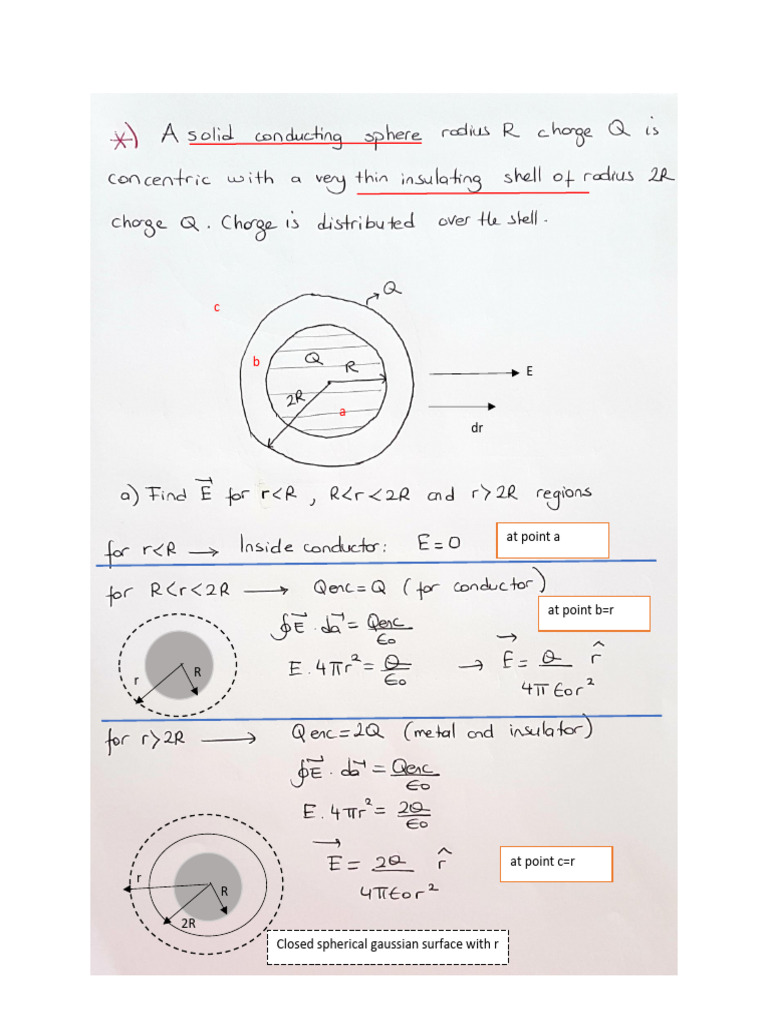 *) A solid conducting sphere radius R charge Q is
concentric with a very thin insulating shell of radius 2R
charge Q. Charge is distributed over the shell.
Q
c
b
Q
R
E
2R
a
dr
a) Find E⃗ for r<R , R<r<2R and r>2R regions
for r<R → Inside conductor: E=0
at point a
for R<r<2R → Qenc=Q (for conductor)
at point b=r
∮E⃗.da⃗ = Qenc/ϵ0
E.4πr² = Q/ϵ0 → E⃗ = Q/4πϵ0r² r̂
R
r
for r>2R → Qenc=2Q (metal and insulator)
∮E⃗.da⃗ = Qenc/ϵ0
E.4πr² = 2Q/ϵ0
E⃗ = 2Q/4πϵ0r² r̂
at point c=r
r
R
2R
Closed spherical gaussian surface with r